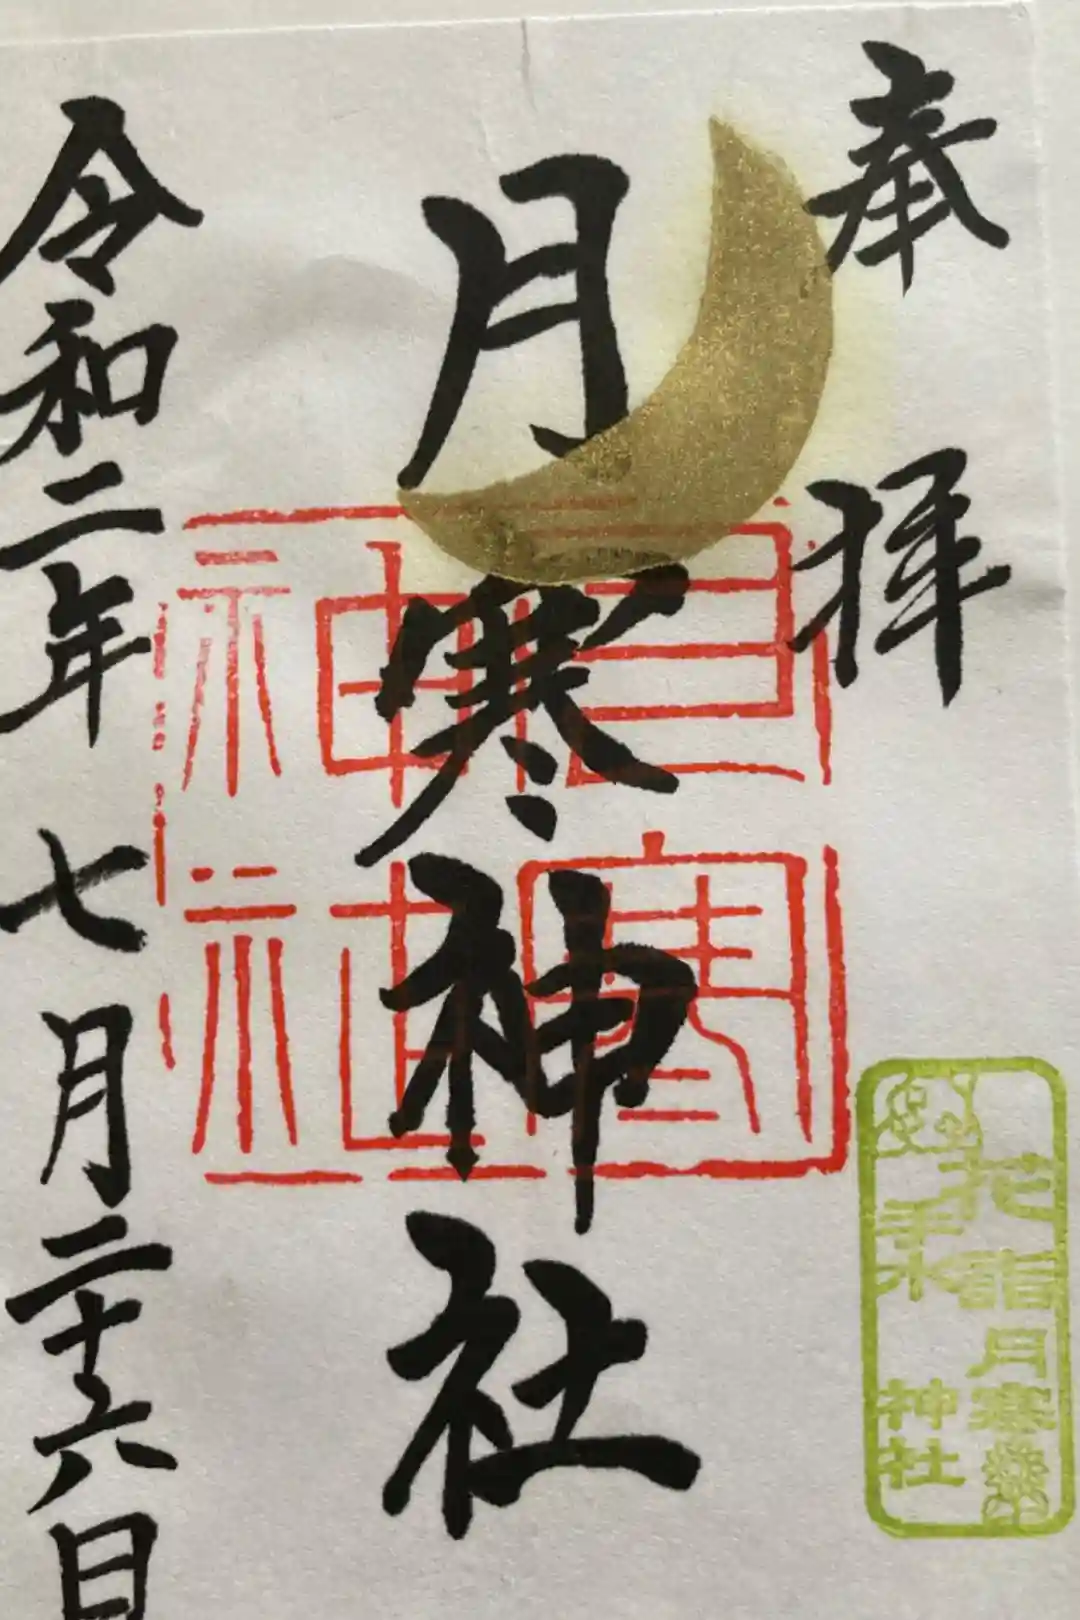 奉拝
月寒神社
令和二年 七月二十六日
月寒神社
花詣
手水
月寒
神社